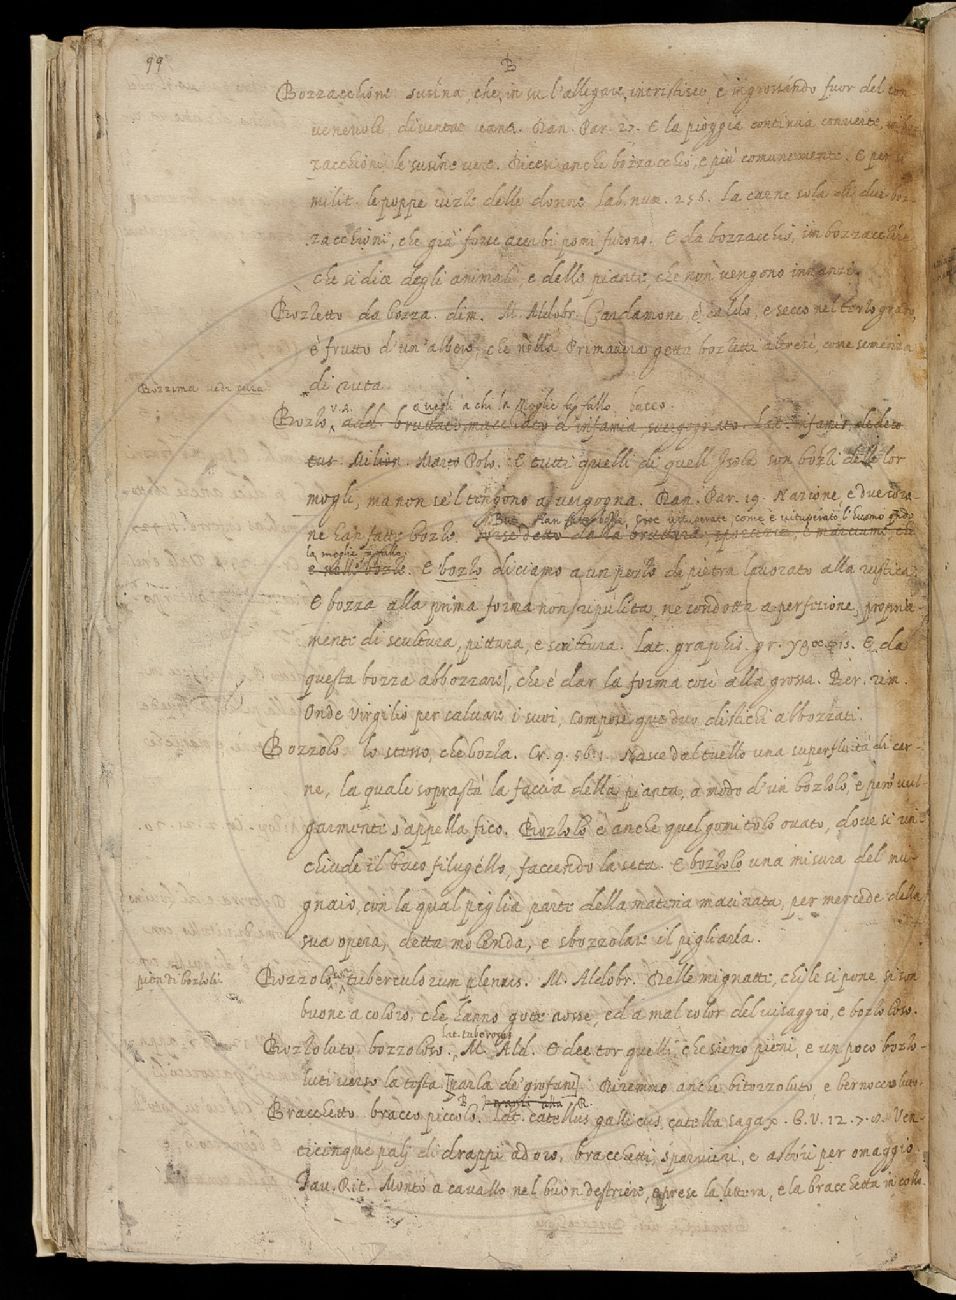 99
B
Bozzacchione susina, che, in su l'allegare, intristisce, e ingrossando fuor del con-
venevole, diventa vana. Dan. Par. 27. E la pioggia continua converte, in boz-
zacchioni le susine vere. Dicesi anche bozzacchio, e più comunemente. E per si
milit. le poppe vizze delle donne Lab. num. 258. La carne sola di due boz-
zacchioni, che già forse acerbi pomi furono. E da bozzacchio, imbozzacchire
che si dice degli animali, e delle piante, che non vengono innanzi.
Bozzetto da bozza. dim. M. Aldobr. Cardamone è caldo, e secco nel terzo grado,
è frutto d'un'albero, che nella Primavera getta bozzetti altresì, come semenza
di ruta
Bozzima vedi
Bozzo v.A. quegli a chi la moglie fa fallo becco.
add. bruttato, macchiato d'infamia, svergognato. Lat. infamis, dedeco
rus. Milion. Marco Polo. E tutti quelli di quell'Isola son bozzi delle lor
mogli, ma non se'l tengono a vergogna. Dan. Par. 19. Nazione, e due coro
Buc. Dan. cioè vituperate, come è vituperato l'huomo quando
ne han fatte bozze. forse detto dalla bruttura,
la moglie fa fallo
e nelle bozze. E bozzo diciamo a un pezzo di pietra lavorato alla rustica.
E bozza alla prima forma non ripulita, ne condotta a perfezione, propria-
mente di scultura, pittura, e scrittura. Lat. graphis. gr. γραφις. E da
questa bozza abbozzare, che è dar la forma così alla grossa. Ber. rim.
Onde Virgilio per calvare i suoi, Compose que' duo distichi abbozzati.
Bozzolo lo stesso, che bozza. Cr. 9. 56. 1. Nasce dal tuello una superfluità di car-
ne, la quale soprastà la faccia della pianta, a modo d'un bozzolo, e però vul-
garmente s'appella fico. Bozzolo è anche quel gomitolo ovato, dove si rin
chiude il baco filugello, facendo la seta. E bozzolo una misura del mu-
gnaio, con la qual piglia parte della materia macinata, per mercede della
sua opera, detta molenda, e sbozzolare il pigliarla.
pien di bozzoli.
Bozzoloso tuberculorum plenus. M. Aldobr. Delle mignatte, chi le si pone, si son
buone a coloro, che hanno gote rosse, ed a mal color del visaggio, e bozzoloso.
lat. tuberosus
Bozzoluto bozzoloso. M. Ald. E dee tor quelli, che sieno pieni, e un poco bozzo-
luti verso la testa [parla de' grofani]. Diremmo anche bitorzoluto e bernoccoluto.
Bracchetto bracco piccolo. Lat. catellus gallicus, catella sagax. G. V. 12. 7. 8. Ven-
ticinque palj di drappi ad oro, bracchetti, sparvieri, e astori per omaggio
Tav. Rit. Montò a cavallo nel buon destriere, e prese la lettera, e la bracchetta in collo.